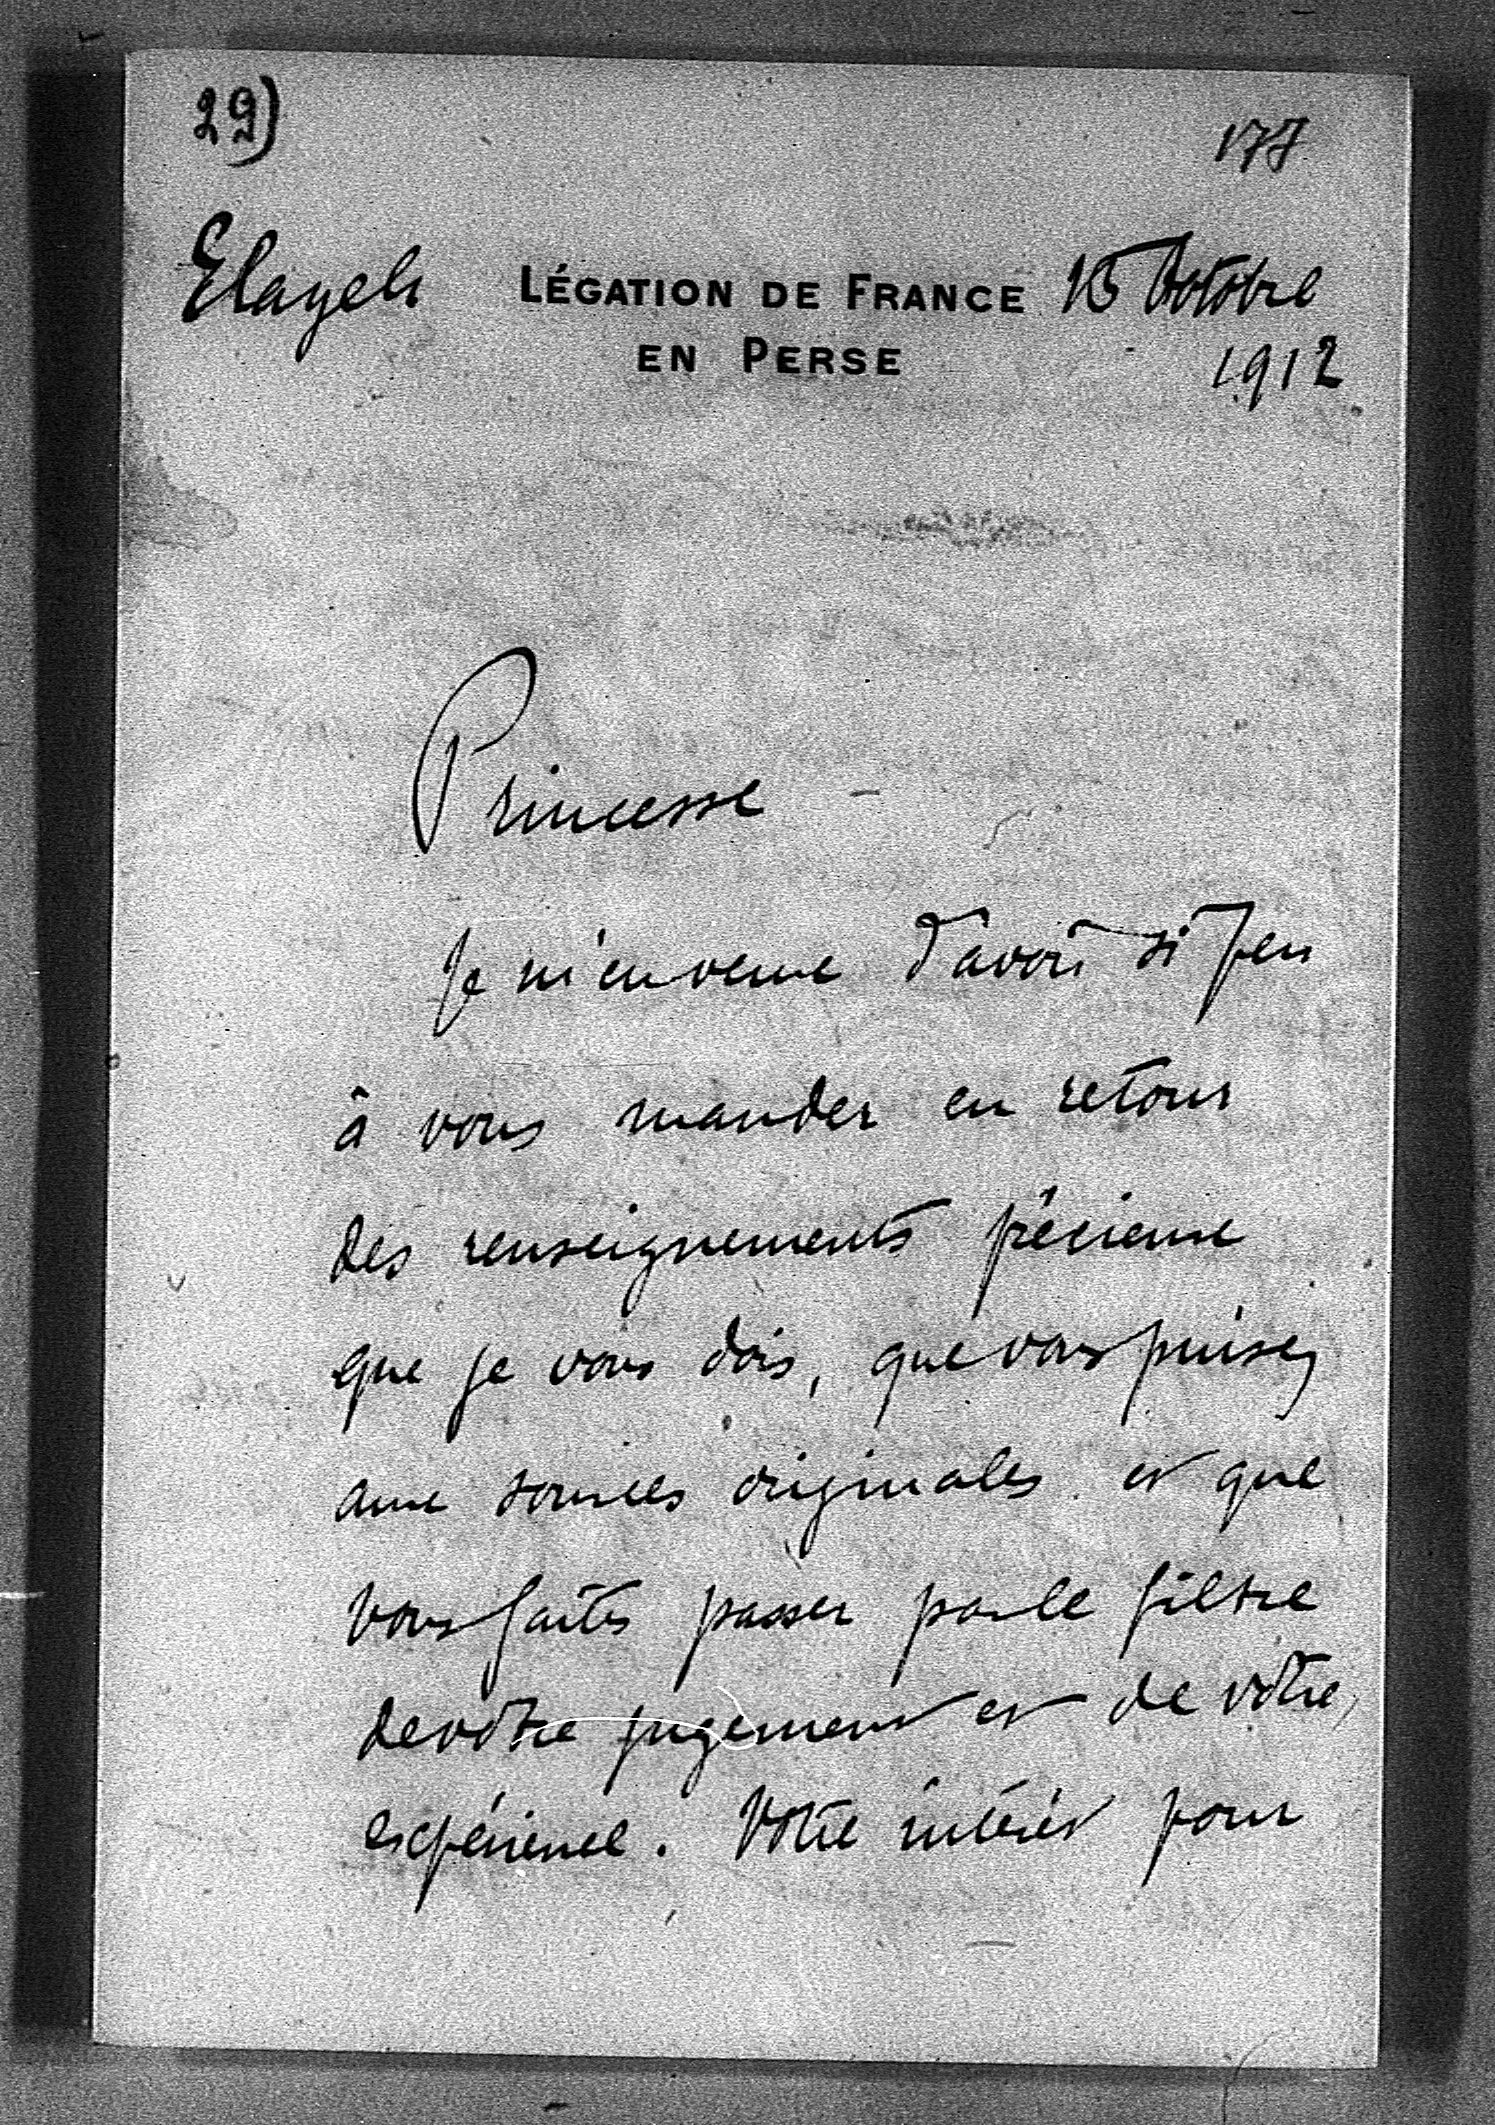 29)
177
Elayeh LÉGATION DE FRANCE 15 Octobre
EN PERSE 1912
Princesse -
Je m'en veux d'avoir si peu
à vous mander en retour
des renseignements précieux
que je vous dois, que vous puisez
aux sources originales et que
vous faites passer par le filtre
de votre jugement et de votre
expérience. Votre intérêt pour